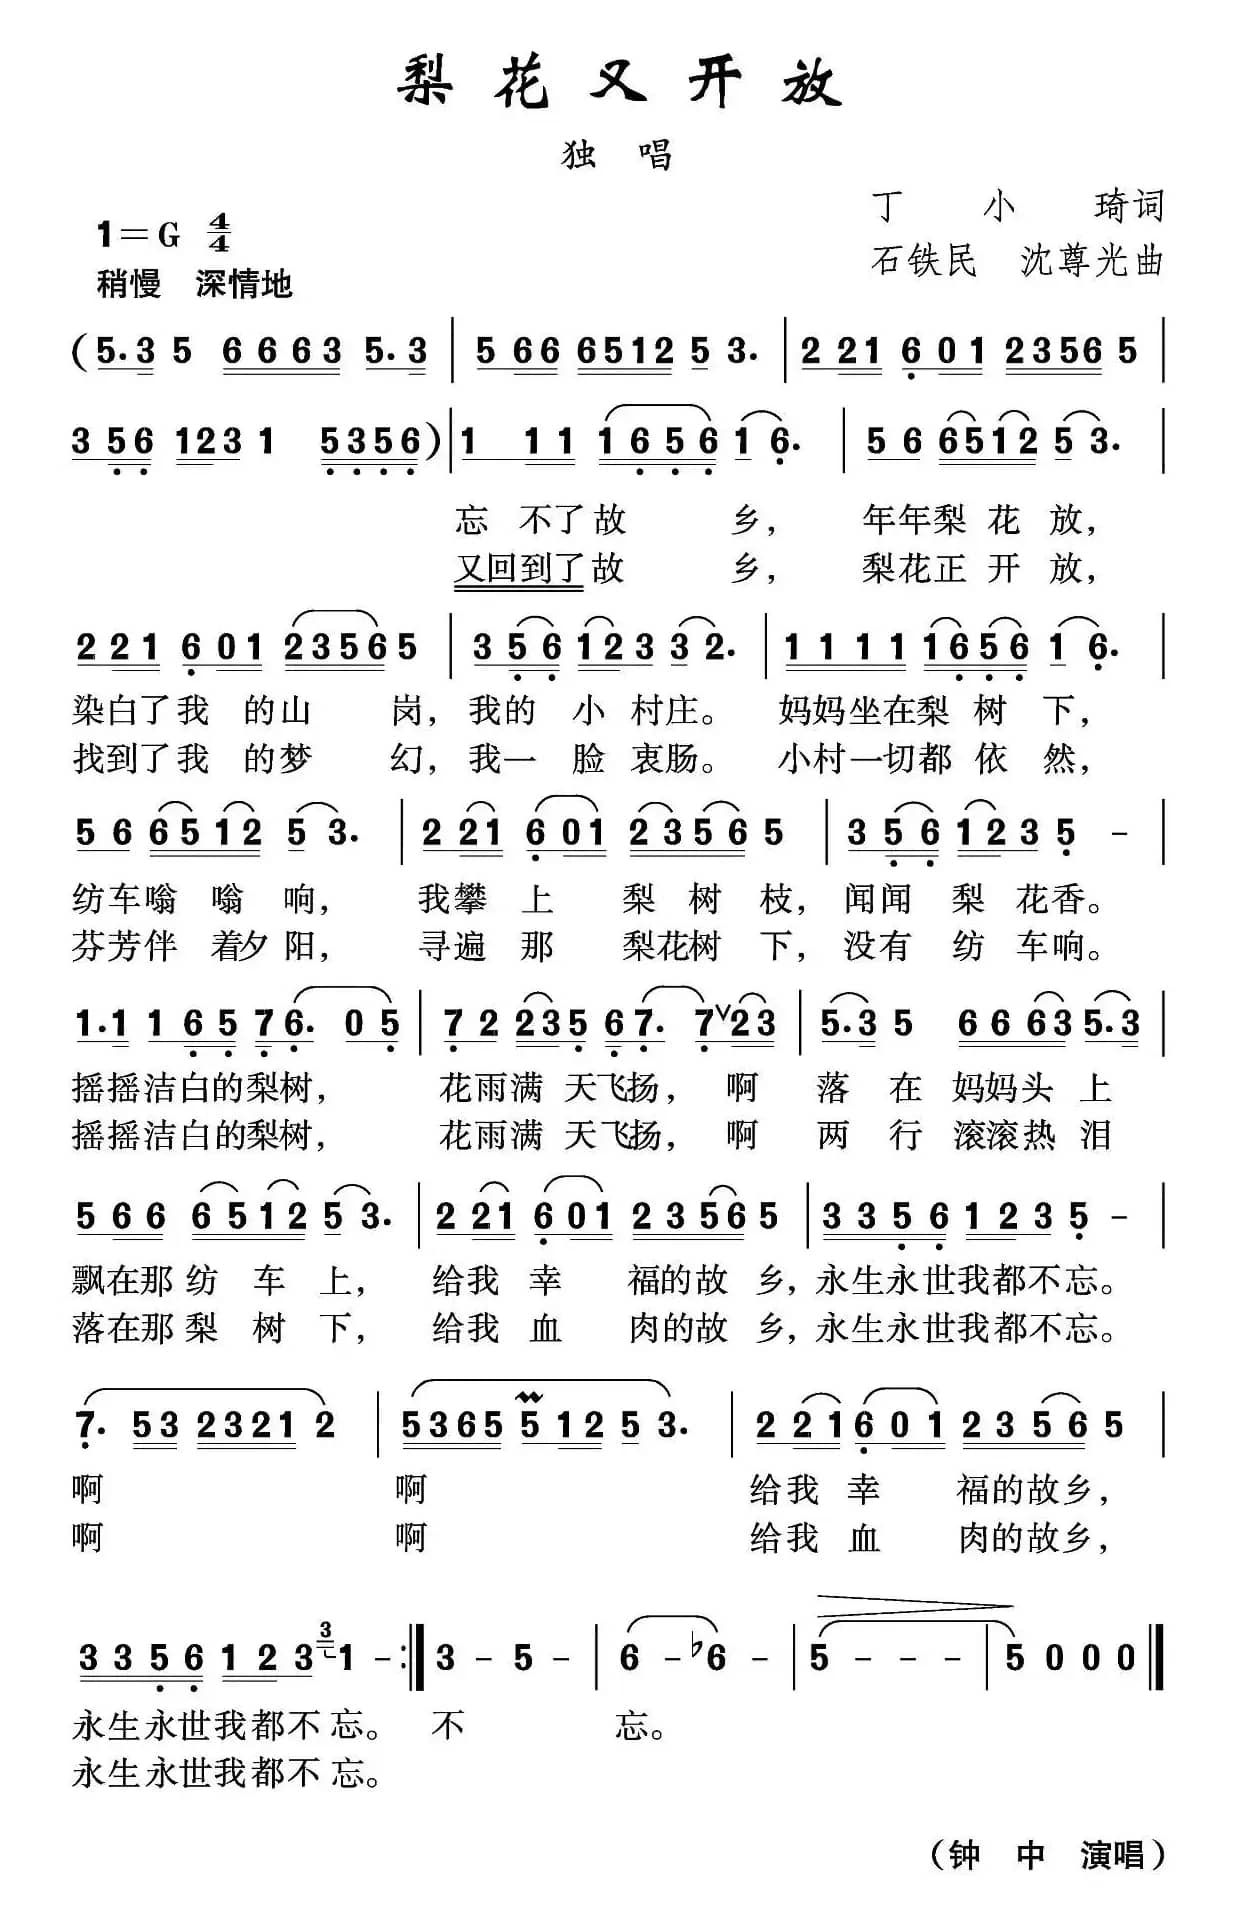 梨花又开放
独 唱
丁 小 琦词
1=G 4/4
石铁民 沈尊光曲
稍慢 深情地
(5.3 5 6663 5.3 | 566 6512 5 3. | 221 6 01 2356 5 |
356 123 1 5356)| 1 11 1656 1 6. | 56 6512 5 3. |
忘 不了故 乡, 年年梨 花 放,
又回到了故 乡, 梨花正 开 放,
221 6 01 2356 5 | 356 123 3 2. | 1111 1656 1 6. |
染白了我 的山 岗, 我的 小 村庄。 妈妈坐在梨 树 下,
找到了我 的梦 幻, 我一 脸 衷肠。 小村一切都 依 然,
56 6512 5 3. | 221 6 01 2356 5 | 356 123 5 - |
纺车嗡 嗡 响, 我攀 上 梨 树 枝, 闻闻 梨 花香。
芬芳伴 着夕 阳, 寻遍 那 梨花树 下, 没有 纺 车响。
1.1 165 7 6. 0 5 | 72 235 6 7. 7∨23 | 5.3 5 6663 5.3 |
摇摇洁白的梨树, 花雨满 天飞扬, 啊 落 在 妈妈头 上
摇摇洁白的梨树, 花雨满 天飞扬, 啊 两 行 滚滚热 泪
566 6512 5 3. | 221 6 01 2356 5 | 3356 123 5 - |
飘在那 纺 车 上, 给我 幸 福的故 乡, 永生永世我都不忘。
落在那 梨 树 下, 给我 血 肉的故 乡, 永生永世我都不忘。
7. 53 2321 2 | 5365 5 12 5 3. | 221 6 01 2356 5 |
啊 啊 给我 幸 福的故乡,
啊 啊 给我 血 肉的故乡,
3356 123 3 1 - :| 3 - 5 - | 6 - ♭6 - | 5 - - - | 5 0 0 0 |
永生永世我都不 忘。 不 忘。
永生永世我都不 忘。
(钟 中 演唱)